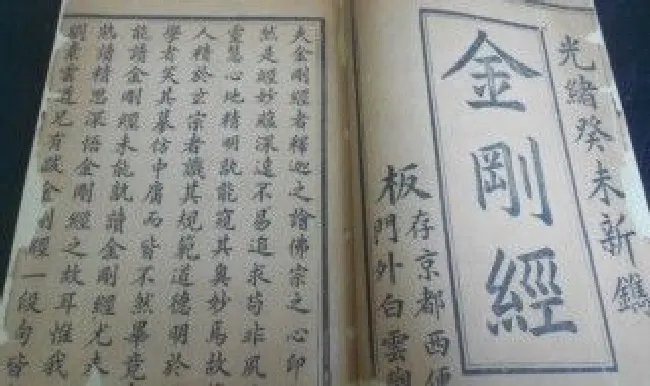 光緒癸未新鐫
金剛經
板存京都西便
門外白雲
夫金剛經者釋迦之佛宗之心印
然是經妙深遠不易追求苟非夙
靈慧心地精明孰能窺其奧妙焉故
人精於玄宗者識其規範道德明於
學者笑其摹仿中庸而皆不然畢竟
能讀金剛經未能孰讀金剛經尤夫
孰讀精思深悟金剛經之故耳惟我
劉素雲道兄有跋金剛經一段句皆